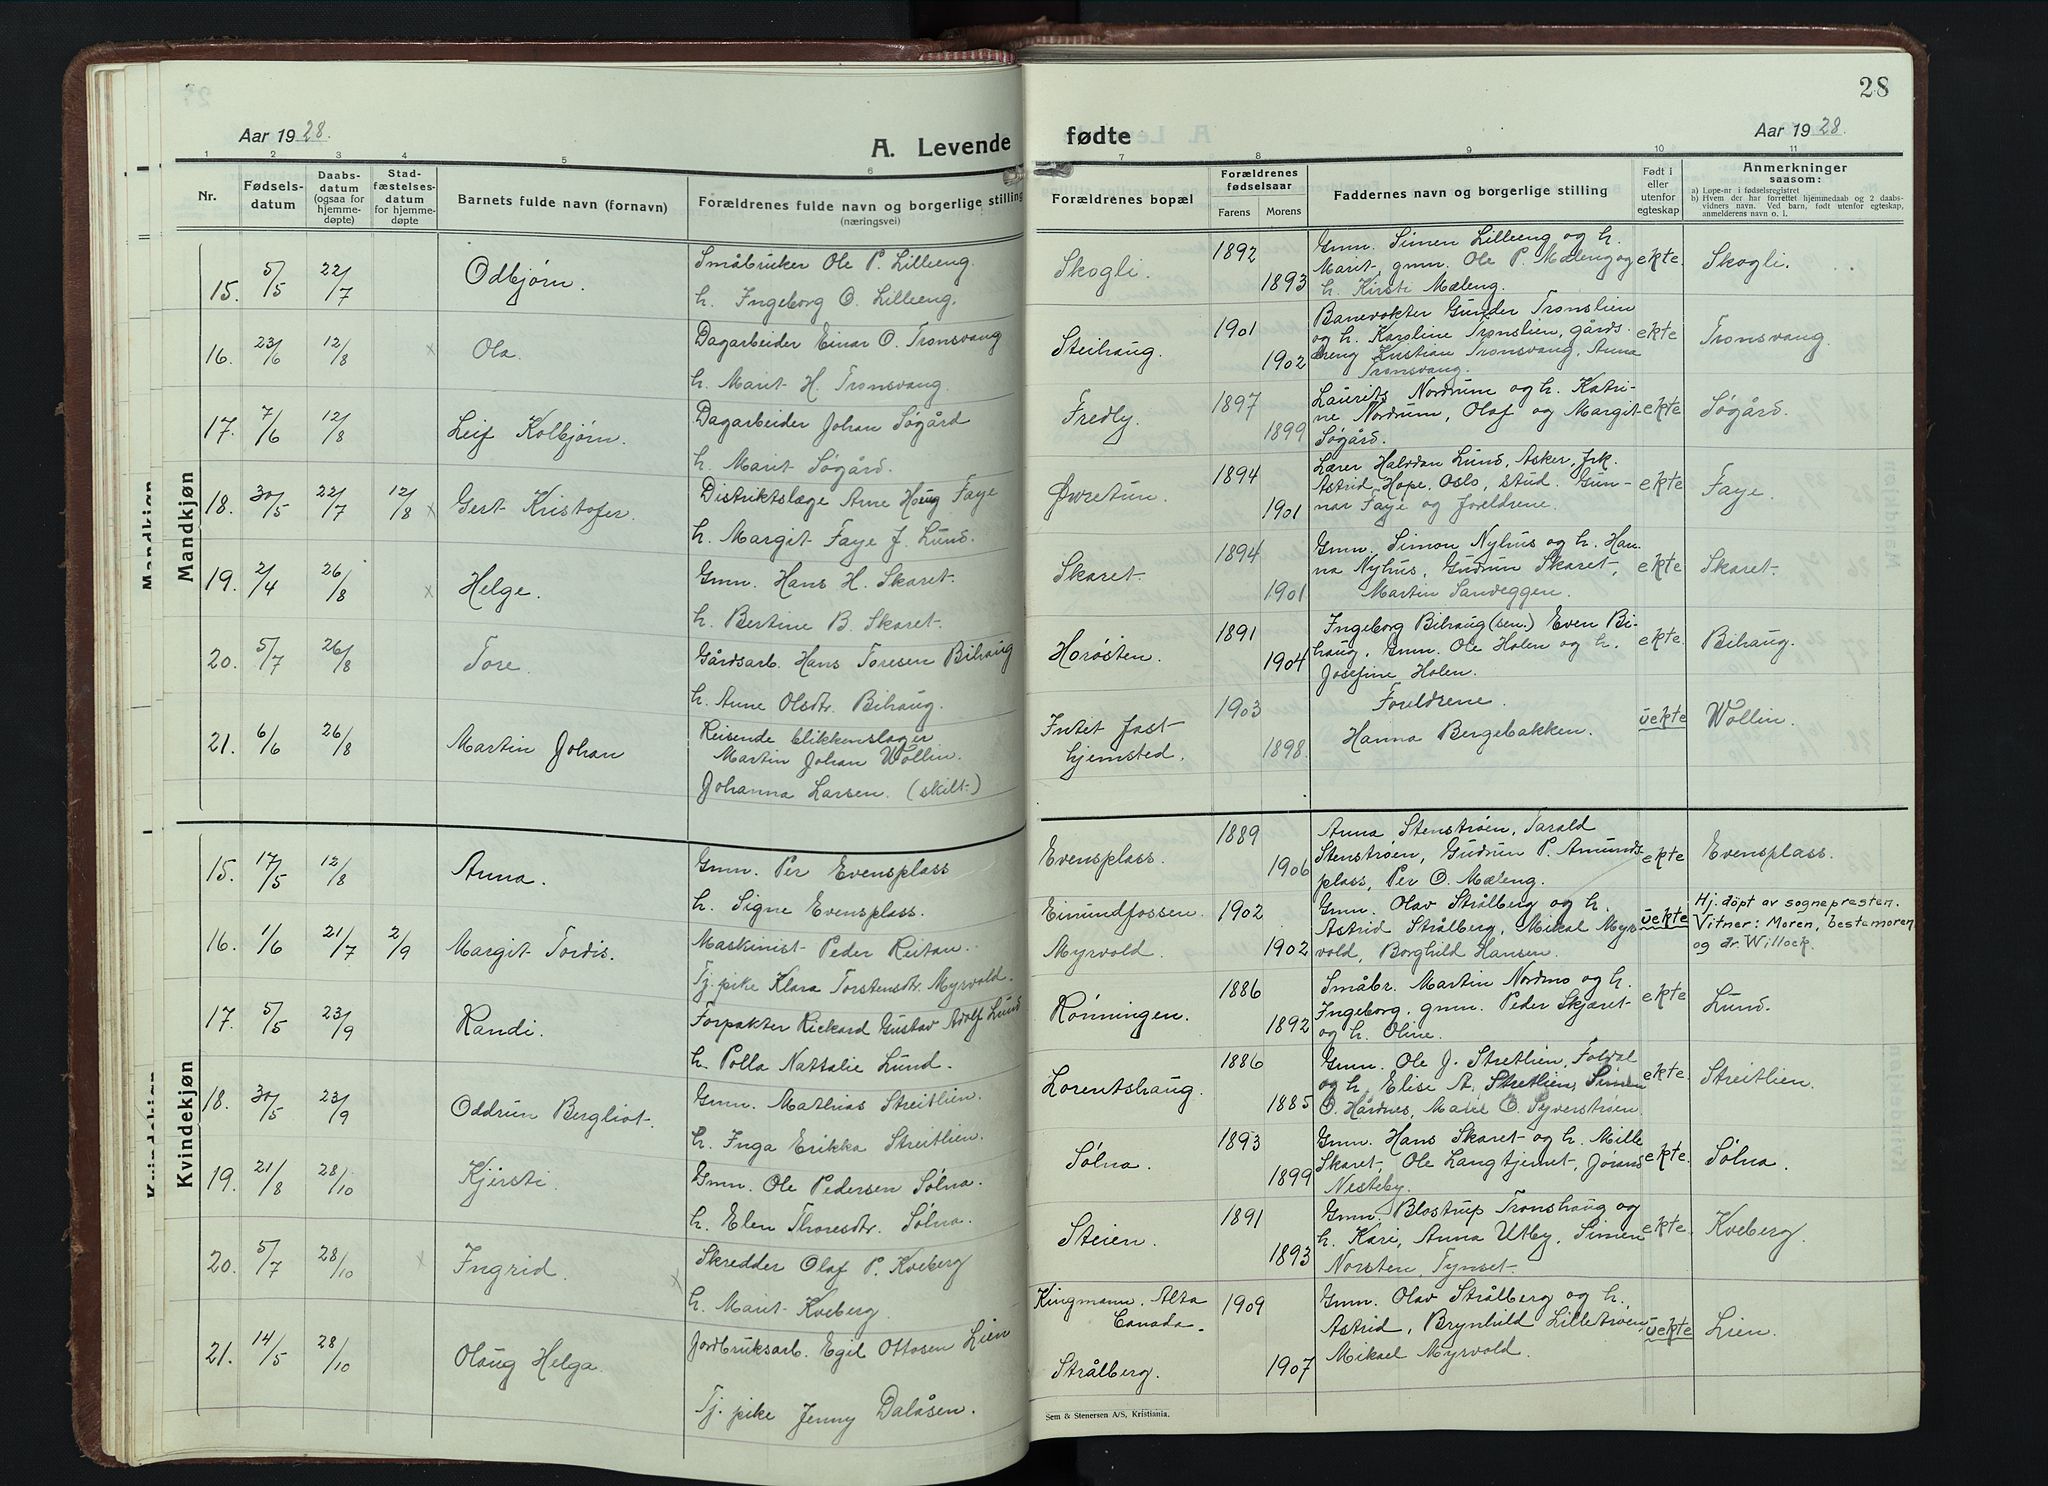 28
Aar 1928.
A. Levende
fødte
Aar 1928.
1 2 3 4 5 6 7 8 9 10 11
Nr.
Fødselsdatum
Daabsdatum (ogsaa for hjemmedøpte)
Stadfæstelsesdatum for hjemmedøpte
Barnets fulde navn (fornavn)
Forældrenes fulde navn og borgerlige stilling
(næringsvei)
Forældrenes bopæl
Forældrenes fødselsaar
Farens Morens
Faddernes navn og borgerlige stilling
Født i eller utenfor egteskap
Anmerkninger
saasom:
a) Løpe-nr i fødselsregistret
b) Hvem der har forrettet hjemmedaab og 2 daabsvidners navn. Ved barn, født utenfor egteskap, anmelderens navn o. l.
Mandkjøn
15. 5/5 22/7 Odbjørn.
Småbruker Ole P. Lilleeng.
h. Ingeborg O. Lilleeng.
Skogli. 1892 1893
Gmn. Simen Lilleeng og h.
Marit, gmn. Ole P. Mæleng og
h. Kirsti Mæleng.
ekte. Skogli.
16. 23/6 12/8 x Ola.
Dagarbeider Einar O. Tronsvang
h. Marit H. Tronsvang.
Steihaug. 1901 1902
Banevokter Gunder Tronslien
og h. Karoline Tronslien, gårds.
dreng Kristian Tronsvang, Anna
Tronsvang.
ekte Tronsvang.
17. 7/6 12/8 Leif Kolbjørn.
Dagarbeider Johan Søgård
h. Marit Søgård.
Fredly. 1897 1899
Laurits Nordrum og h. Katri-
ne Nordrum, Olaf og Margit
Søgård.
ekte Søgård.
18. 30/5 22/7 12/8 x Gert Kristofer.
Distriktslæge Arne Houg Faye
h. Margit Faye f. Lund.
Øvretun. 1894 1901
Lærer Halvdan Lund, Asker, frk.
Astrid Hope, Oslo, stud. Gun-
nar Faye og foreldrene.
ekte Faye.
19. 2/4 26/8 x Helge.
Gmn. Hans H. Skaret.
h. Bertine B. Skaret.
Skaret. 1894 1901
Gmn. Simon Nyhus og h. Han-
na Nyhus, Gudrun Skaret,
Martin Sandeggen.
ekte Skaret.
20. 5/7 26/8 Tore.
Gårdsarb. Hans Toresen Bihaug
h. Anne Olsdtr. Bihaug.
Horøsten. 1891 1904
Ingeborg Bihaug (sen.) Even Bi-
haug, Gmn. Ole Holen og h.
Josefine Holen.
ekte. Bihaug.
21. 6/6 26/8 Martin Johan
Reisende blikkenslager
Martin Johan Wollin.
Johanna Larsen. (skilt)
Intet fast
hjemsted. 1903 1898.
Foreldrene.
Hanna Bergebakken.
uekte Wollin.
Kvindekjøn
15. 17/5 12/8 Anna.
Gmn. Per Evensplass
h. Signe Evensplass.
Evensplass. 1889 1906
Anna Stenstrøen, Tarald
Stenstrøen, Gudrun P. Amunds-
plass, Per O. Mæleng.
ekte Evensplass.
16. 1/6 21/7 2/9 Margit Tordis.
Maskinist Peder Reitan.
Tj. pike Klara Torstensdtr. Myrvold.
Eimundfossen.
Myrvold. 1902 1902
Gmn. Olav Strålberg og h.
Astrid Strålberg, Mikal Myr-
vold, Borghild Hansen.
uekte
Hj. döpt av sognepresten.
Vitner: Moren, bestemoren
og dr. Willock.
17. 5/5 23/9 Randi.
Forpakter Rickard Gustav Adolf Lund
h. Polla Nattalie Lund.
Rønningen. 1886 1892
Småbr. Martin Nordmo og h.
Ingeborg, gmn. Peder Skjæret
og h. Oline.
ekte Lund.
18. 30/5 23/9 Oddrun Bergliot.
Gmn. Mathias Streitlien.
h. Inga Erikka Streitlien.
Lorentshaug. 1886 1885
Gmn. Ole J. Stretlien, Foldal
og h. Elise A. Stretlien, Simen
O. Hårdnes, Marie O. Syverstrøen.
ekte. Streitlien.
19. 21/8 28/10 Kjersti.
Gmn. Ole Pedersen Sølna.
h. Elen Thoresdtr. Sølna.
Sølna. 1893 1899
Gmn. Hans Skaret og h. Mille
Skaret, Ole Langtjernet, Jørand
Nesteby.
ekte. Sølna.
20. 5/7 28/10 x Ingrid.
Skredder Olaf P. Kveberg
x h. Marit Kveberg
Steien. 1891 1893
Gmn. Blostrup Tronshaug og
h. Kari, Anna Utby, Simen
Norsten, Tynset.
ekte. Kveberg.
21. 14/5 28/10 Olaug Helga.
Jordbruksarb. Egil Ottosen Lien
Tj. pike Jenny Dalåsen.
Kingmann, Alta
Canada.
Strålberg. 1909 1907
Gmn. Olav Strålberg og h.
Astrid, Brynhild Lilletrøen,
Mikael Myrvold.
uekte Lien.
Sem & Stenersen A/S, Kristiania.